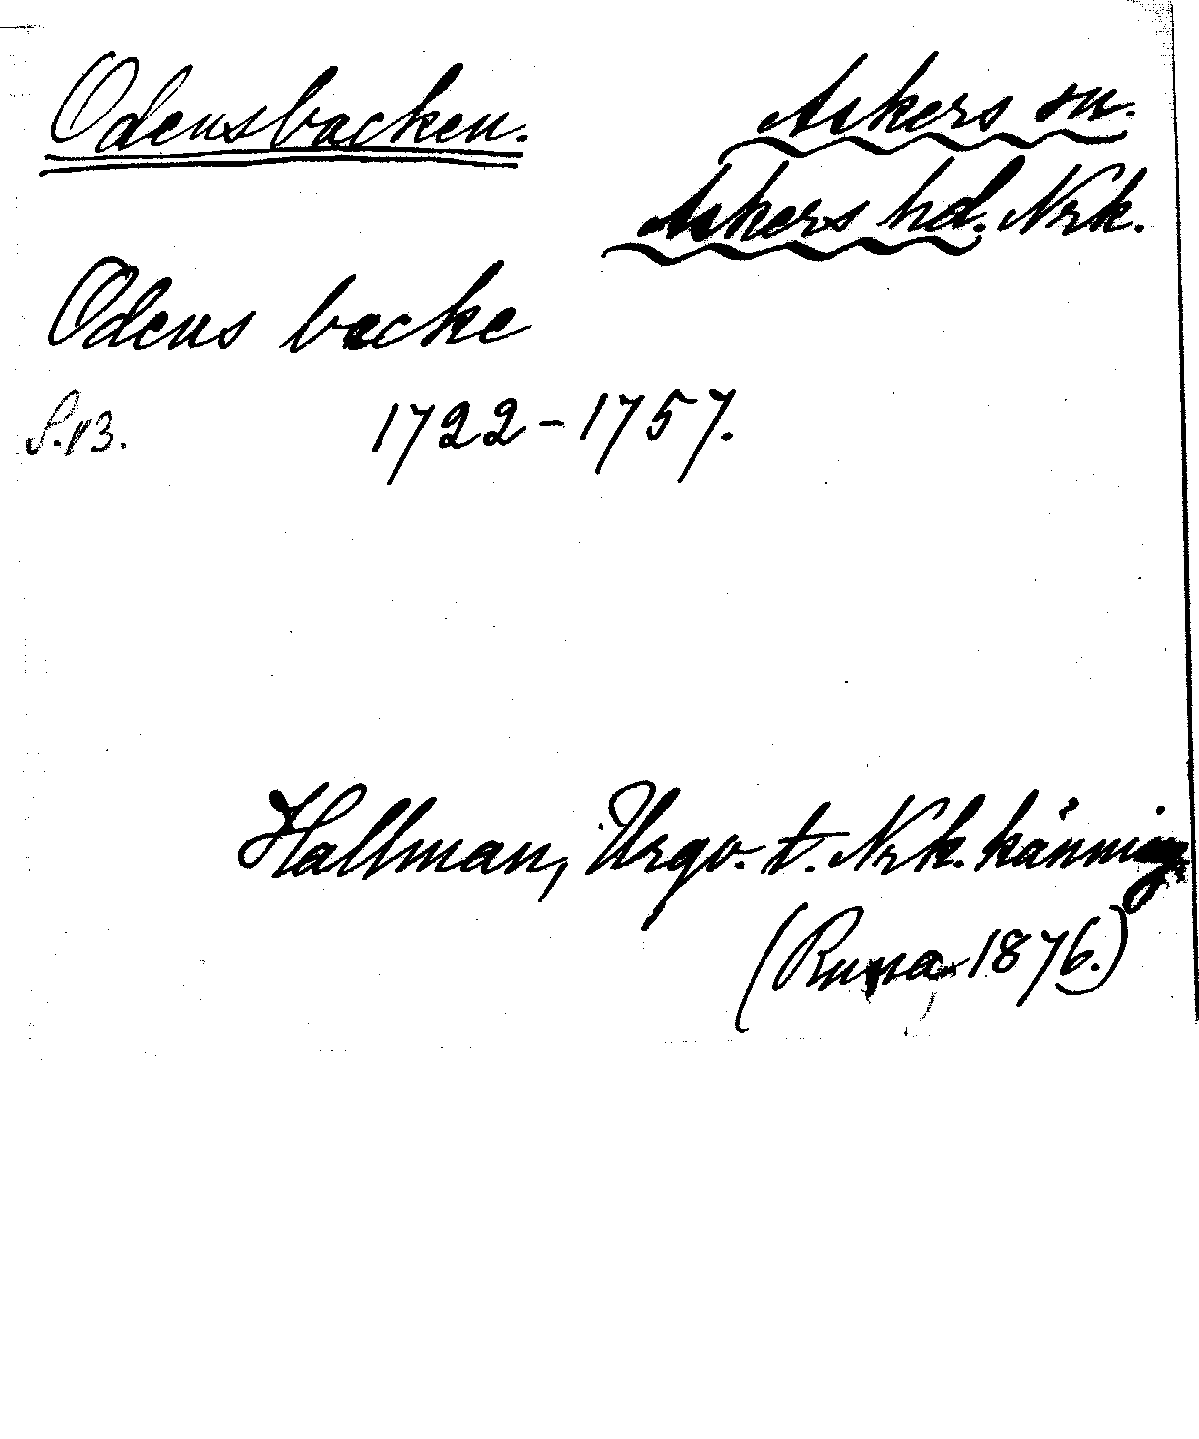 Odensbacken.
Askers sn.
Askers hd. Nrk.
Odens backe
S. 13. 1722-1757.
Hallman, Urgv. t. Nrk. känning
(Runa 1876.)